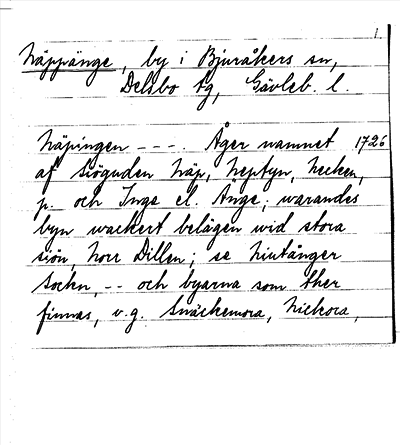 1.
Näppänge, by i Bjuråkers sn,
Delsbo tg, Gävleb. l.
Näpingen - - - . Äger namnet 1726
af siöguden Näp, Neptyn, Necken,
p. och Inge el. Änge; warandes
byn wackert belägen wid stora
siön, Norr Dillen; se Niutånger
Sockn, - - och byarna som ther
finnas, v.g. Snäckemora, Nickora,